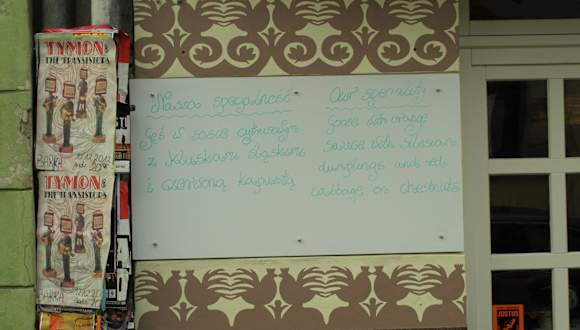 TYMON &
THE TRANSISTORS
BARKA
TYMON &
THE TRANSISTORS
BARKA
Nasza specjalność
Gęś w sosie cytrusowym
z kluskami śląskimi
i czerwoną kapustą
Our speciality
Goose with orange
Sauce with silesian
dumplings and red
cabbage or chestnuts
JUSTUS